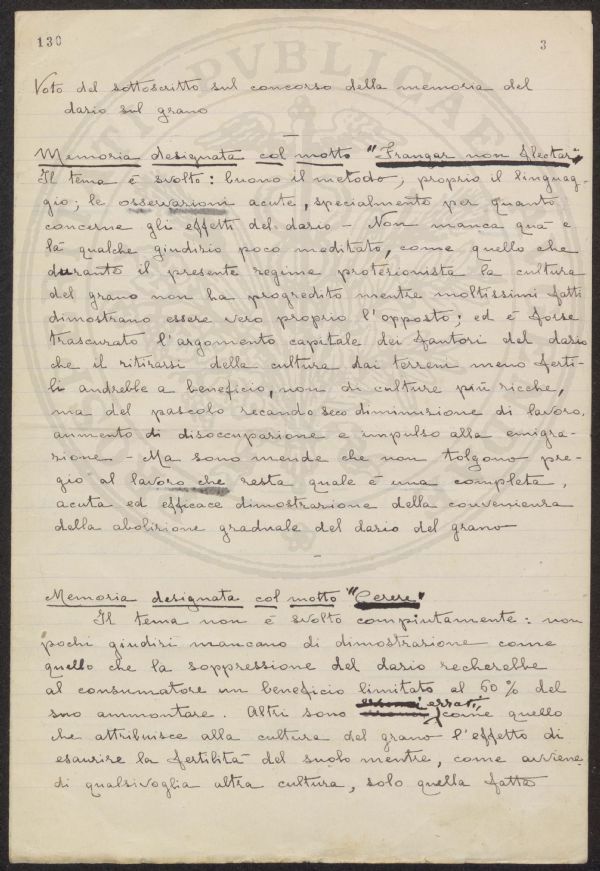 130
3
Voto del sottoscritto sul concorso della memoria del
dazio sul grano
Memoria designata col motto "Frangar non flectar"
Il tema è svolto: buono il metodo, proprio il linguag-
gio; le osservazioni acute, specialmente per quanto
concerne gli effetti del dazio – Non manca quà e
là qualche giudizio poco meditato, come quello che
durante il presente regime protezionista la cultura
del grano non ha progredito mentre moltissimi fatti
dimostrano essere vero proprio l'opposto; ed è forse
trascurato l'argomento capitale dei fautori del dazio
che il ritirarsi della cultura dai terreni meno ferti-
li andrebbe a beneficio, non di culture più ricche,
ma del pascolo recando seco diminuzione di lavoro,
aumento di disoccupazione e impulso alla emigra-
zione – Ma sono mende che non tolgono pre-
gio al lavoro che resta quale è una completa,
acuta ed efficace dimostrazione della convenienza
della abolizione graduale del dazio del grano
Memoria designata col motto "Cerere"
Il tema non è svolto compiutamente: non
pochi giudizi mancano di dimostrazione come
quello che la soppressione del dazio recherebbe
al consumatore un beneficio limitato al 60 % del
suo ammontare. Altri sono errati, come quello
che attribuisce alla cultura del grano l'effetto di
esaurire la fertilità del suolo mentre, come avviene
di qualsivoglia altra cultura, solo quella fatta